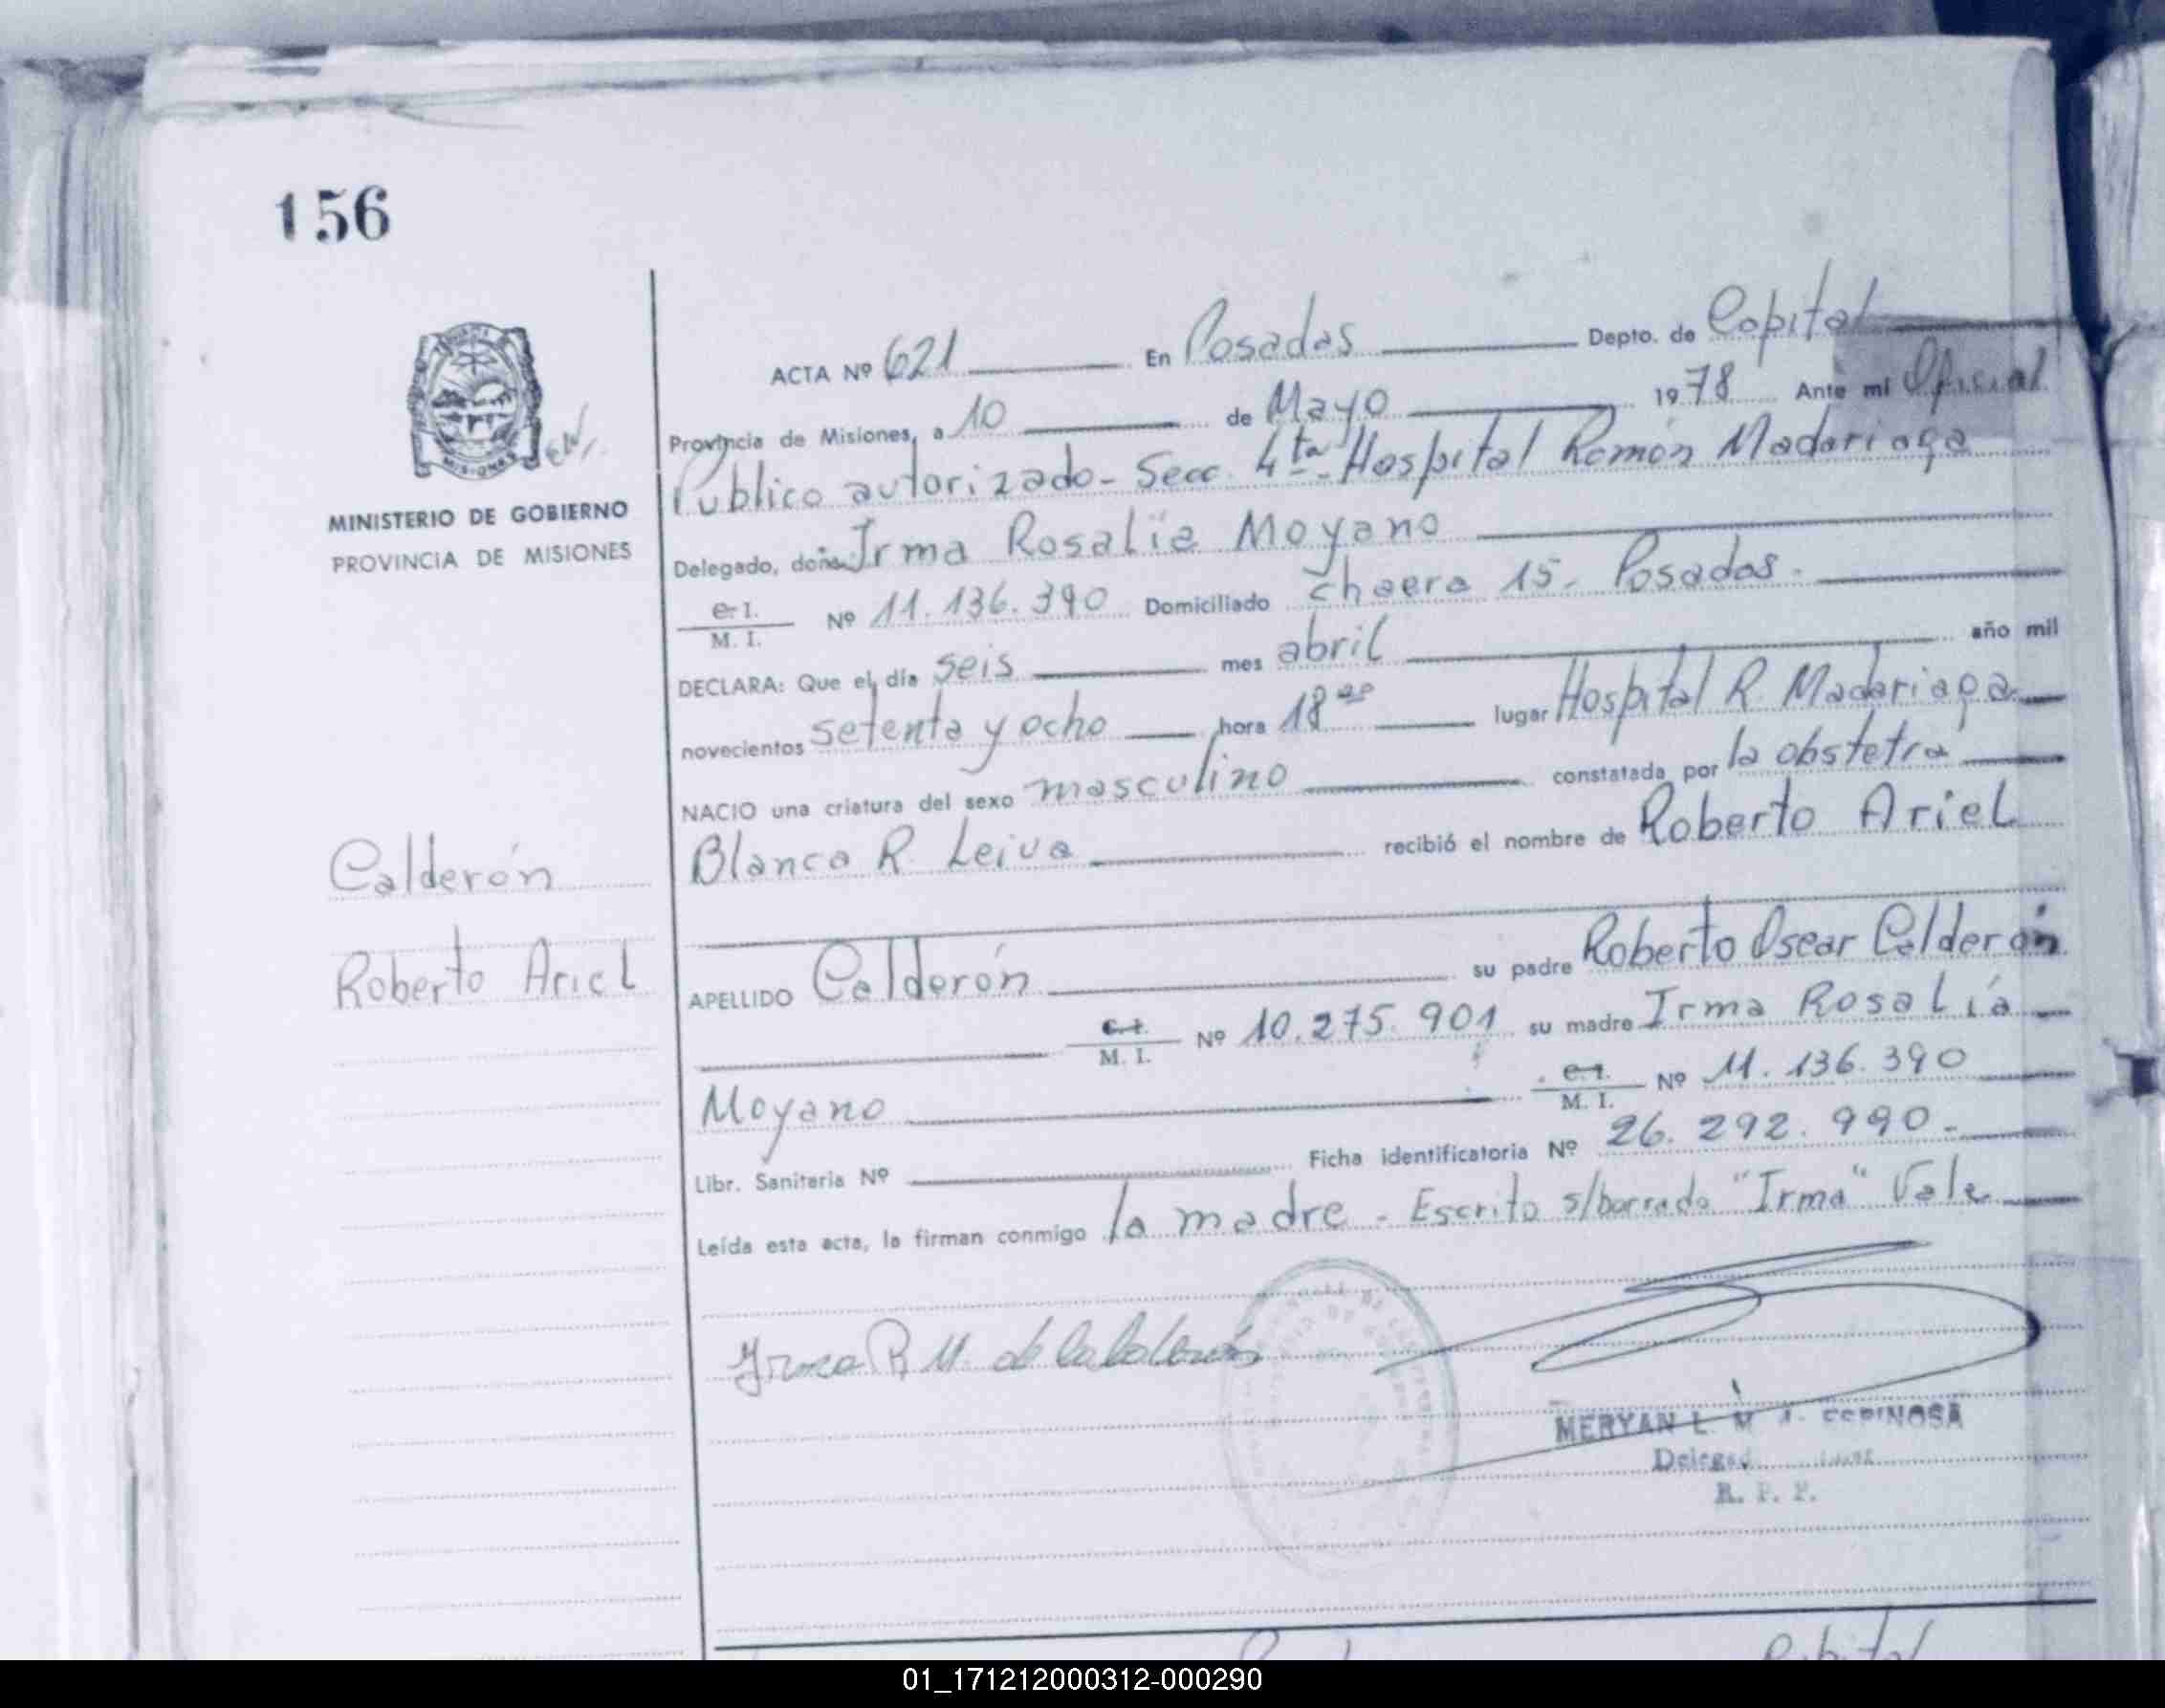 156
ACTA Nº 621 En Posadas Depto. de Capital
Provincia de Misiones, a 10 de Mayo 1978 Ante mi Oficial
Publico autorizado - Secc. 4ta - Hospital Ramón Madariaga
MINISTERIO DE GOBIERNO
PROVINCIA DE MISIONES
Delegado, doña Irma Rosalía Moyano
C. I.
M. I. Nº 11.136.390 Domiciliado chacra 15 - Posadas -
DECLARA: Que el día seis mes abril año mil
novecientos setenta y ocho hora 18 lugar Hospital R. Madariaga
NACIO una criatura del sexo masculino constatada por la obstetra
Calderón
Blanca R. Leiva recibió el nombre de Roberto Ariel
Roberto Ariel
APELLIDO Calderón su padre Roberto Oscar Calderón
C. I.
M. I. Nº 10.275.901 su madre Irma Rosalía
Moyano C. I.
M. I. Nº 11.136.390
Libr. Sanitaria Nº Ficha identificatoria Nº 26.292.990 -
Leída esta acta, la firman conmigo la madre - Escrito s/borrado "Irma" Vale
Irma R M. de Calderón
MERYAN L. M ESPINOSA
R. P. P.
01_171212000312-000290